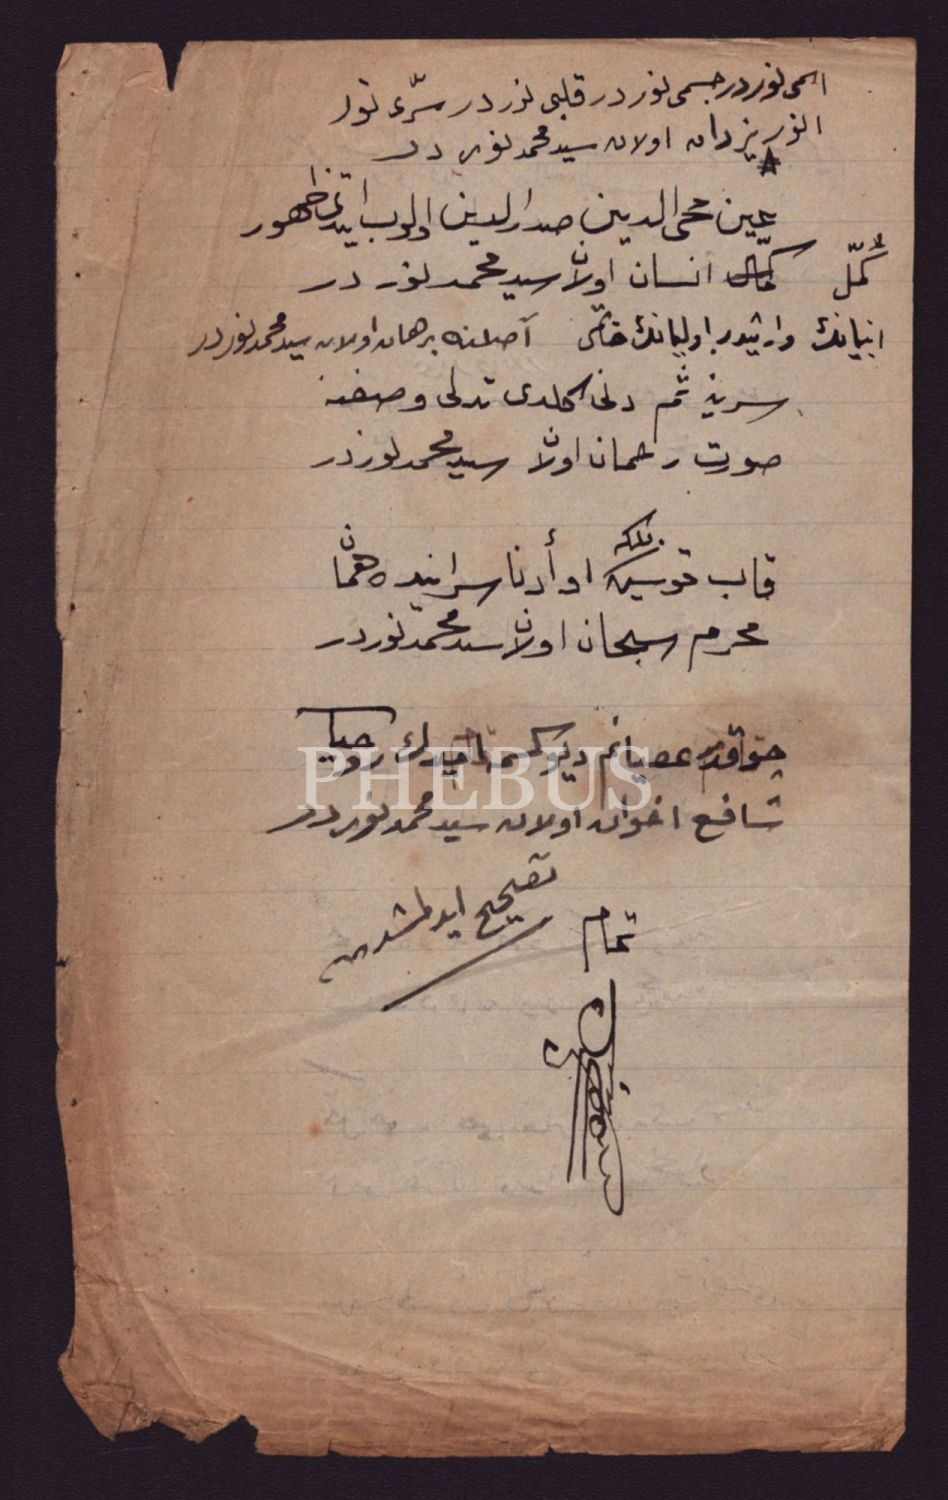 اسمی نوردر جسمی نوردر قلبی نوردر سرّی نور
النور یزدان اولان سید محمد نوردر
عین محی الدین صدرالدین اولوب ایتدی ظهور
کُمّل کمال انسان اولان سید محمد نوردر
انبیانك وارثیدر اولیانك خاتمی آصلنه برهان اولان سید محمد نوردر
سرینه ثم دنی کلدی تدلی وصفنه
صورت رحمان اولان سید محمد نوردر
قاب قوسین بلکه او أدنا سرایننده همان
محرم سبحان اولان سید محمد نوردر
چوقدر عصیانم دیو
شافع اخوان اولان سید محمد نوردر
تصحیح ایدلمشدر
تمام
PHEBUS